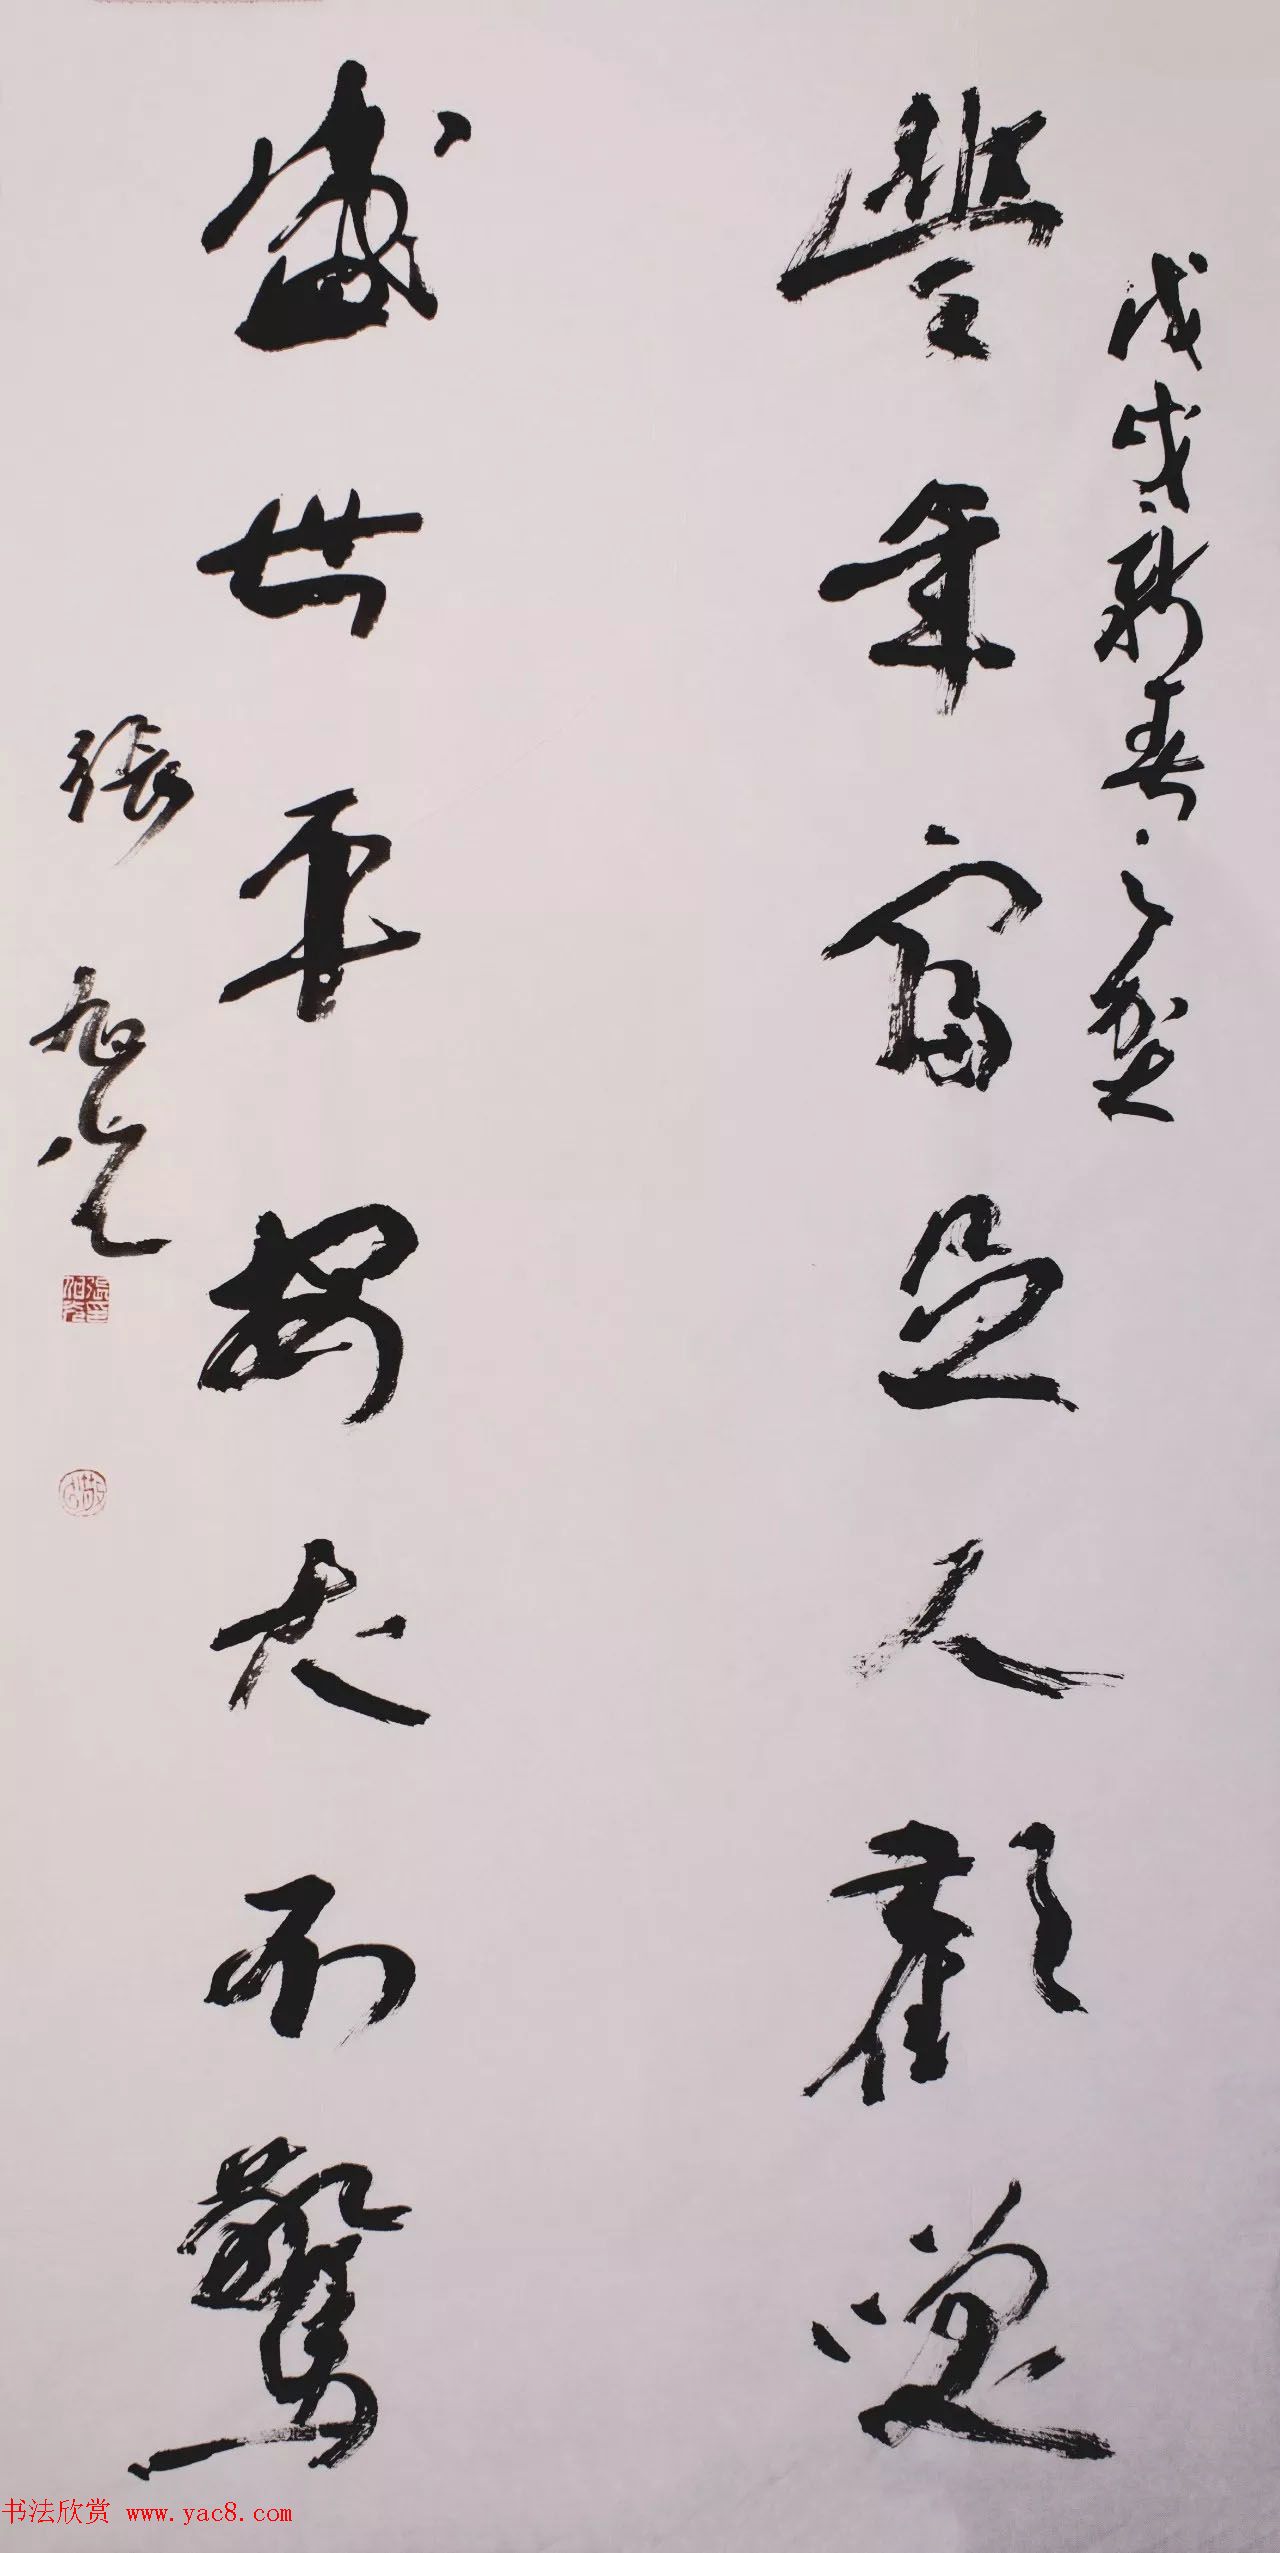 戊戌新春之契
豐年富足人歡樂
盛世平安犬不驚
張旭光
书法欣赏 www.yac8.com